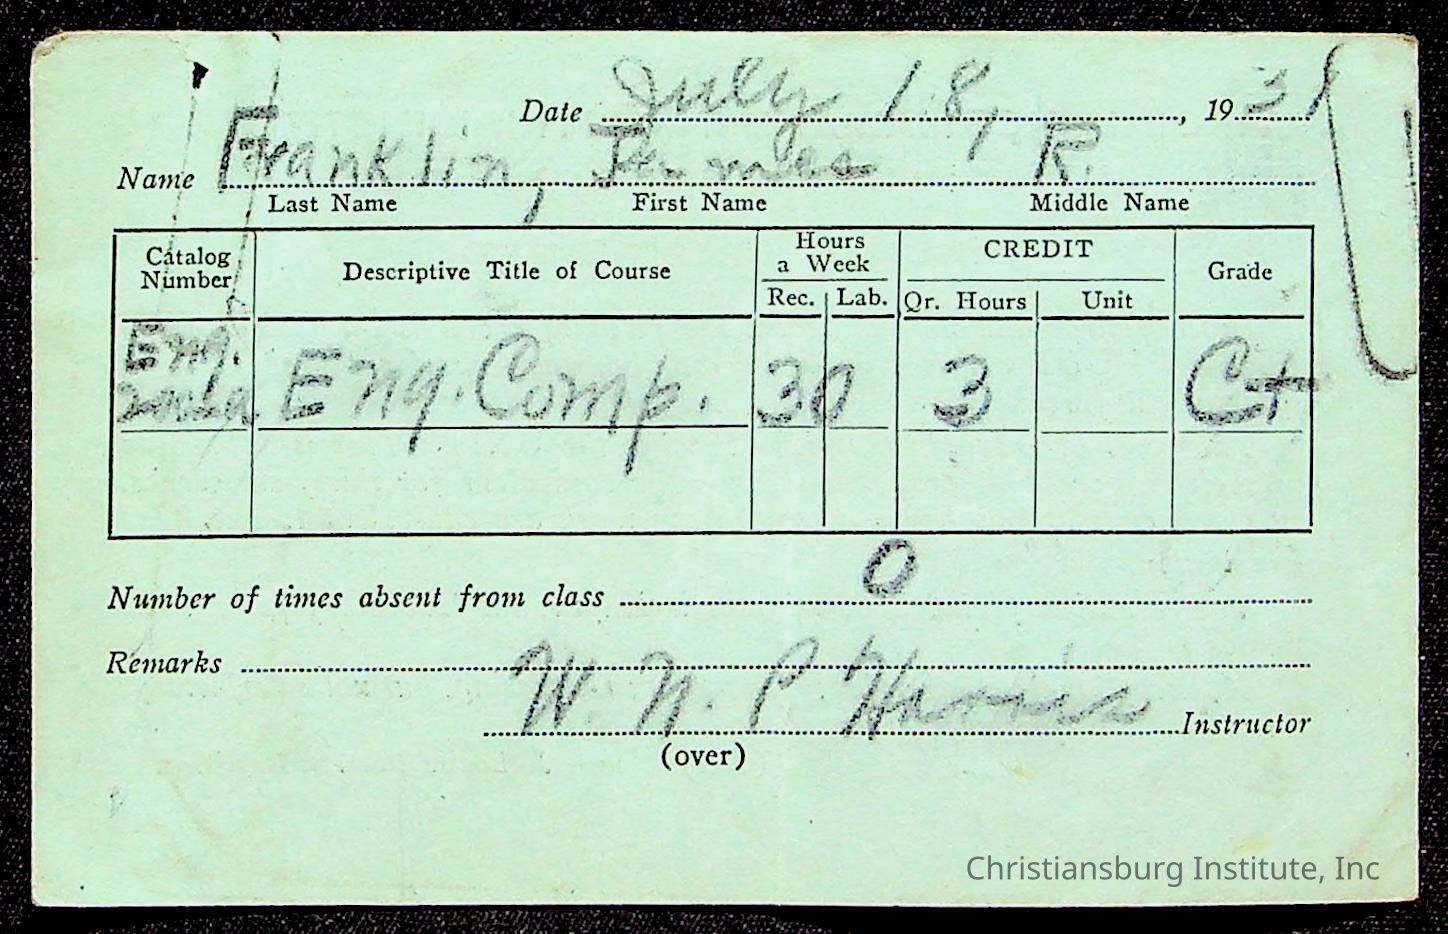 Date July 18, 1931
Name Franklin, James R.
Last Name First Name Middle Name
Catalog Number Descriptive Title of Course Hours a Week CREDIT Grade
Rec. Lab. Qr. Hours Unit
Eng. Eng. Comp. 3 0 3 C+
Number of times absent from class 0
Remarks
W. N. P. Harris Instructor
(over)
Christiansburg Institute, Inc